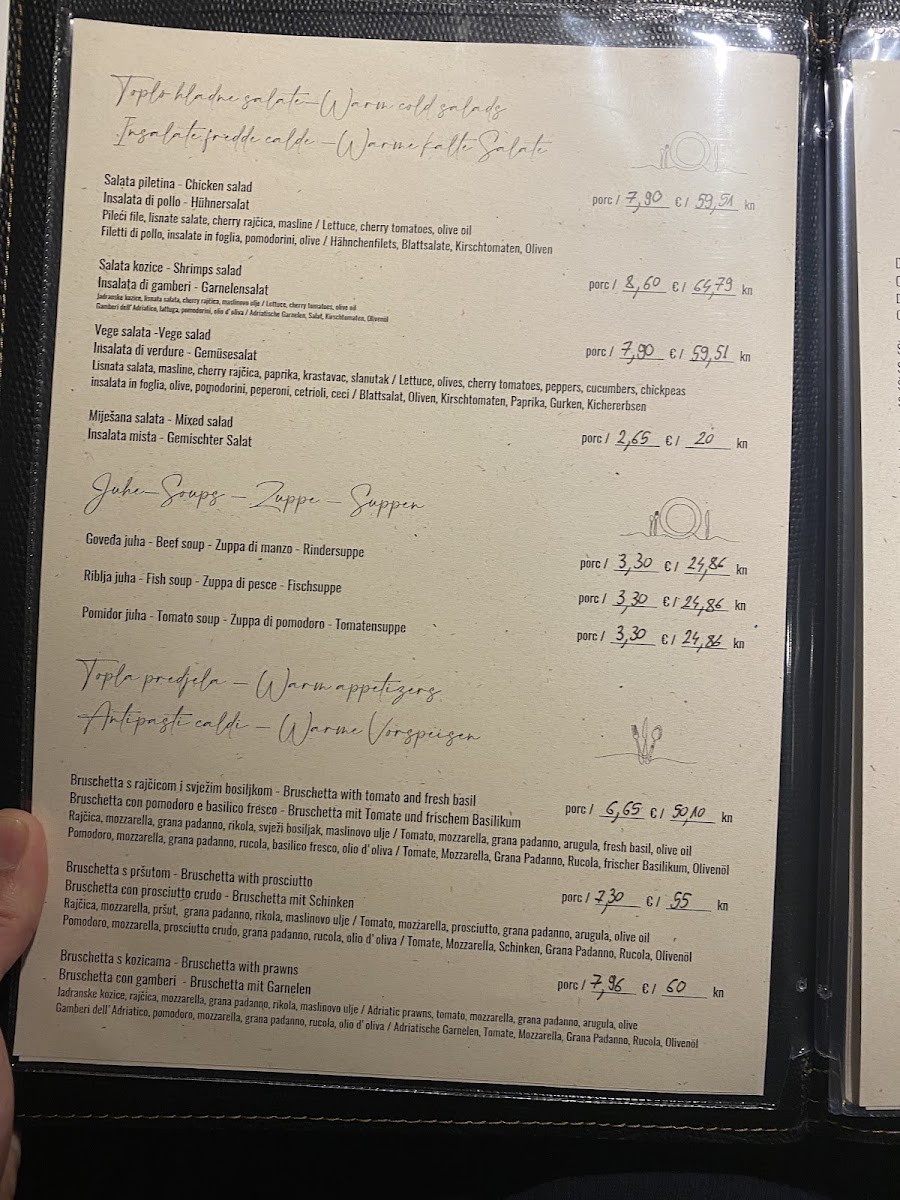 Toplo hladne salate – Warm cold salads
Insalate fredde calde – Warme kalte Salate
Salata piletina - Chicken salad
Insalata di pollo - Hühnersalat
porc / 7,90 € / 59,51 kn
Pileći file, lisnate salate, cherry rajčica, masline / Lettuce, cherry tomatoes, olive oil
Filetti di pollo, insalate in foglia, pomodorini, olive / Hähnchenfilets, Blattsalate, Kirschtomaten, Oliven
Salata kozice - Shrimps salad
Insalata di gamberi - Garnelensalat
porc / 8,60 € / 64,79 kn
Jadranske kozice, lisnata salata, cherry rajčica, maslinovo ulje / Lettuce, cherry tomatoes, olive oil
Gamberi dell'Adriatico, lattuga, pomodorini, olio d'oliva / Adriatische Garnelen, Salat, Kirschtomaten, Olivenöl
Vege salata -Vege salad
Insalata di verdure - Gemüsesalat
porc / 7,90 € / 59,51 kn
Lisnata salata, masline, cherry rajčica, paprika, krastavac, slanutak / Lettuce, olives, cherry tomatoes, peppers, cucumbers, chickpeas
insalata in foglia, olive, pomodorini, peperoni, cetrioli, ceci / Blattsalat, Oliven, Kirschtomaten, Paprika, Gurken, Kichererbsen
Miješana salata - Mixed salad
Insalata mista - Gemischter Salat
porc / 2,65 € / 20 kn
Juhe – Soups – Zuppe – Suppen
Goveđa juha - Beef soup - Zuppa di manzo - Rindersuppe
porc / 3,30 € / 24,86 kn
Riblja juha - Fish soup - Zuppa di pesce - Fischsuppe
porc / 3,30 € / 24,86 kn
Pomidor juha - Tomato soup - Zuppa di pomodoro - Tomatensuppe
porc / 3,30 € / 24,86 kn
Topla predjela – Warm appetizers
Antipasti caldi – Warme Vorspeisen
Bruschetta s rajčicom i svježim bosiljkom - Bruschetta with tomato and fresh basil
Bruschetta con pomodoro e basilico fresco - Bruschetta mit Tomate und frischem Basilikum
porc / 6,65 € / 50,10 kn
Rajčica, mozzarella, grana padanno, rikola, svježi bosiljak, maslinovo ulje / Tomato, mozzarella, grana padanno, arugula, fresh basil, olive oil
Pomodoro, mozzarella, grana padanno, rucola, basilico fresco, olio d'oliva / Tomate, Mozzarella, Grana Padanno, Rucola, frischer Basilikum, Olivenöl
Bruschetta s pršutom - Bruschetta with prosciutto
Bruschetta con prosciutto crudo - Bruschetta mit Schinken
porc / 7,30 € / 55 kn
Rajčica, mozzarella, pršut, grana padanno, rikola, maslinovo ulje / Tomato, mozzarella, prosciutto, grana padanno, arugula, olive oil
Pomodoro, mozzarella, prosciutto crudo, grana padanno, rucola, olio d'oliva / Tomate, Mozzarella, Schinken, Grana Padanno, Rucola, Olivenöl
Bruschetta s kozicama - Bruschetta with prawns
Bruschetta con gamberi - Bruschetta mit Garnelen
porc / 7,96 € / 60 kn
Jadranske kozice, rajčica, mozzarella, grana padanno, rikola, maslinovo ulje / Adriatic prawns, tomato, mozzarella, grana padanno, arugula, olive
Gamberi dell'Adriatico, pomodoro, mozzarella, grana padanno, rucola, olio d'oliva / Adriatische Garnelen, Tomate, Mozzarella, Grana Padanno, Rucola, Olivenöl